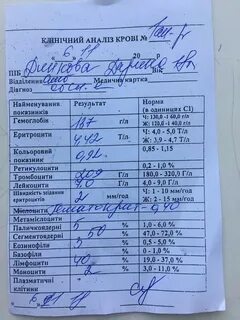 КЛІНІЧНИЙ АНАЛІЗ КРОВІ №
20
ПІБ Вік
Відділення Медична картка
Діагноз
Найменування показників Результат Норма (в одиницях СІ)
Гемоглобін 137 Г/л Ч: 130,0 -1 60,0 г/л Ж: 120,0 -1 40,0 г/л
Еритроцити 4,42 Т/л Ч: 4,0 - 5,0 Т/г Ж: 3,9 - 4,7 Т/г
Кольоровий показник 0,92 0,85 - 1,15
Ретикулоцити 0,2 - 1,0 %
Тромбоцити 209 Г/л 180,0 - 320,0 Г/л
Лейкоцити 4,0 Г/л 4,0 - 9,0 Г/л
Швидкість зідання еритроцитів 2 мм/год Ч: 1 - 10 мм/год Ж: 2 - 15 мм/год
Мієлоцити Гематокрит - 0,40
Метамієлоцити %
Паличкоядерні 5 % 1,0 - 6,0 %
Сегментоядерні 50 % 47,0 - 72,0 %
Еозинофіли 5 % 0,5 - 5,0 %
Базофіли % 0 - 1,0 %
Лімфоцити 40 % 19,0 - 37,0 %
Моноцити % 3,0 - 11,0 %
Плазматичні клітини